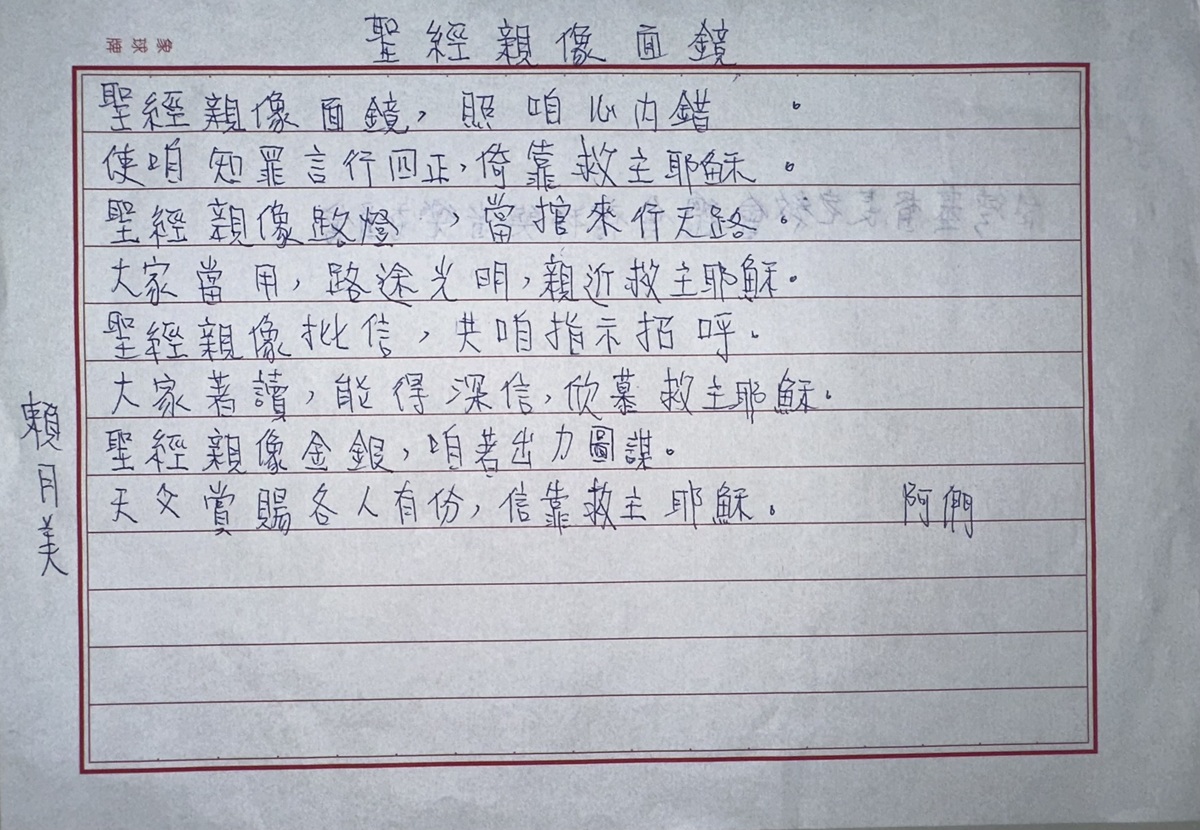 聖經親像面鏡
象球牌
聖經親像面鏡，照咱心內錯。
使咱知罪言行四正，倚靠救主耶穌。
聖經親像路燈，當捾來行天路。
大家當用，路途光明，親近救主耶穌。
聖經親像批信，共咱指示招呼。
大家著讀，能得深信，欣慕救主耶穌。
聖經親像金銀，咱著出力圖謀。
天父賞賜各人有份，信靠救主耶穌。 阿們
賴月美